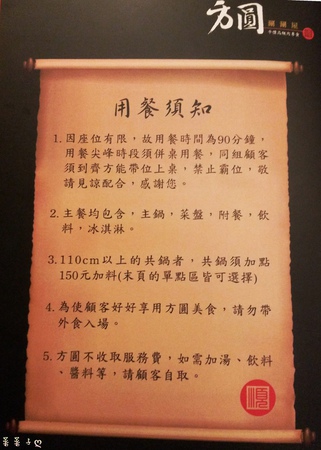 方圓
涮涮屋
用餐須知
1.因座位有限，故用餐時間為90分鐘，
用餐尖峰時段須併桌用餐，同組顧客
須到齊方能帶位上桌，禁止霸位，敬
請見諒配合，感謝您。
2.主餐均包含，主鍋，菜盤，附餐，飲
料，冰淇淋。
3.110cm以上的共鍋者，共鍋須加點
150元加料(末頁的單點區皆可選擇)
4.為使顧客好好享用方圓美食，請勿帶
外食入場。
5.方圓不收取服務費，如需加湯、飲料
、醬料等，請顧客自取。